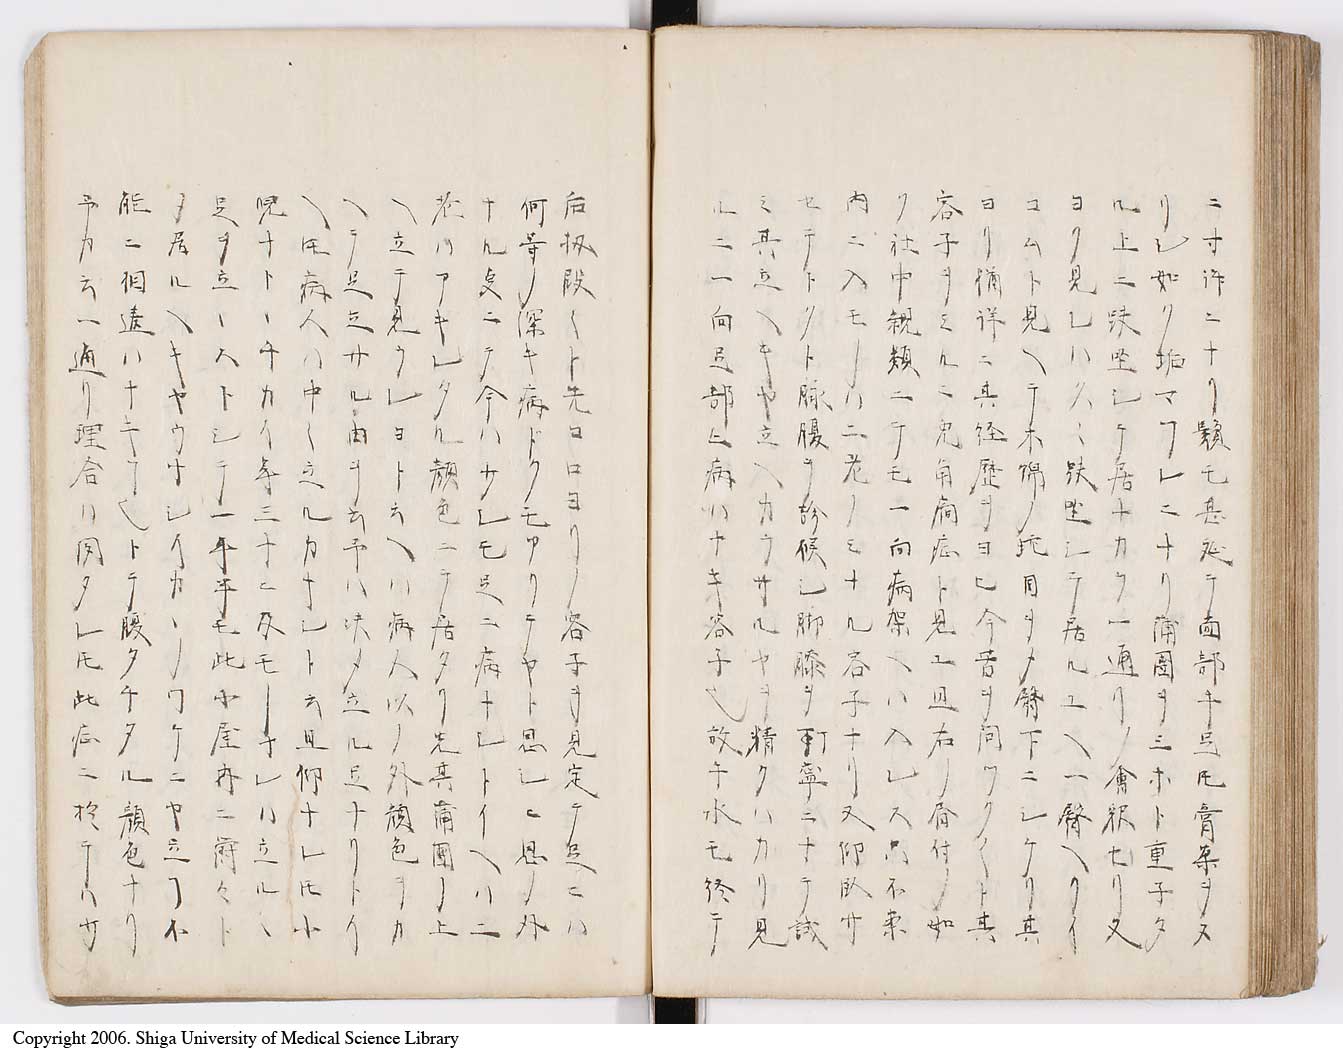 二寸許ニナリ鬚モ甚延テ面部手足トモ膏薬ヲヌ
リシ如ク垢マブレニナリ蒲團ヲ三ホト重子タ
ル上ニ趺坐シテ居ナカラ一通リノ會釈セリ又
ヨク見レハ久シク趺坐シテ居ルユヘ臀ヘクイ
コムト見ヘテ木綿ノ沈目ヲタ臀下ニシケリ其
ヨリ猶詳ニ其経歴ヲヨヒ今昔ヲ問ツクイト其
容子ヲミルニ兎角癇症ト見エ且右リ脣付ノ如
ク社中親類ニテモ一向病架ヘハ入レス只不束
内ニ入モノハ二花ノミナル容子ナリ又仰臥サ
セテトクト脉腹ヲ診候シ脚膝ヲ叮寧ニナテ試
ミ其立ヘキヤ立ヘカラサルヤヲ精クハカリ見
ルニ一向足部ニ病ハナキ容子也故ニ水モ終テ
后扨段々ト先日ヨリノ容子ヲ見定テ足ニハ
何等ノ深キ病ドクモアリテヤト思シニ思ノ外
ナル支ニテ今ハサレモ足ニ病ナシトイヘハ二
花ハアキレタル顔色ニテ居タリ先其蒲團ノ上
ヘ立テ見ラレヨト云ヘハ病人以ノ外顔色ヲカ
ヘテ足立サル由ヲ云予ハ决メ立ル足ナリトイ
ヘトモ病人ハ中々立ルカナシト云且仰ナレトモ小
児ナトヽチカイ年三十ニ及モノナレハ立ルヽ
足ヲ立スストシテ一年半モ此小屋内ニ欝々ト
タ居ルヘキヤウナシイカンノワケニヤ立ヿ不
能ニ相違ハナキヿ也トテ腹タチタル顔色ナリ
予カ云一通リ理合ハ聞タレトモ此症ニ於テハサ
Copyright 2006. Shiga University of Medical Science Library